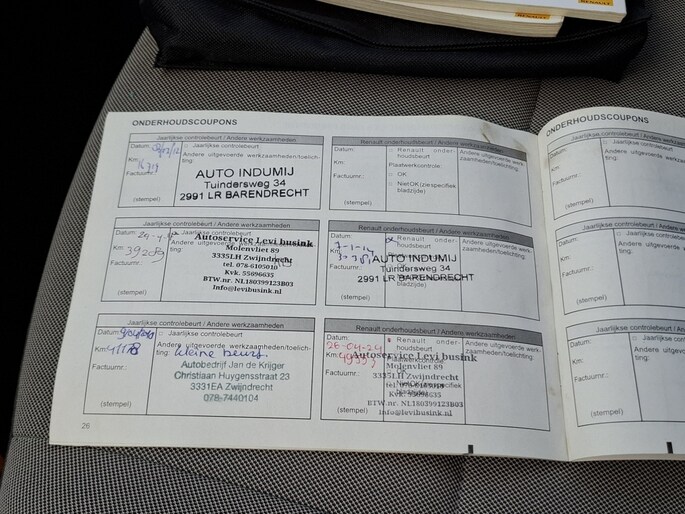 RENAULT
RENAULT
ONDERHOUDSCOUPONS
Jaarlijkse controlebeurt / Andere werkzaamheden
Datum:
Jaarlijkse controlebeurt
Andere uitgevoerde werkzaamheden/toelichting:
Km:
Factuurnr.:
AUTO INDUMIJ
Tuindersweg 34
2991 LR BARENDRECHT
(stempel)
Renault onderhoudsbeurt / Andere werkzaamheden
Datum:
Renault onderhoudsbeurt
Plaatwerkcontrole:
OK
NietOK (zie specifiek bladzijde)
Km:
Factuurnr.:
Andere uitgevoerde werkzaamheden/toelichting:
(stempel)
Jaarlijkse controlebeurt / Andere werkzaamheden
Datum:
Jaarlijkse controlebeurt
Andere uitgevoerde
Km: 39209
Factuurnr.:
Autoservice Levi busink
Molenvliet 89
3335LH Zwijndrecht
tel. 078-6105010
Kvk. 55696635
BTW.nr. NL180399123B03
Info@levibusink.nl
(stempel)
Renault onderhoudsbeurt / Andere werkzaamheden
Datum:
7-1-14
Renault onderhoudsbeurt
Km:
Factuurnr.:
Andere uitgevoerde werkzaamheden/toelichting:
AUTO INDUMIJ
Tuindersweg 34
2991 LR BARENDRECHT
(stempel)
Jaarlijkse controlebeurt / Andere werkzaamheden
Datum:
Jaarlijkse controlebeurt
Andere uitgevoerde werkzaamheden/toelichting: kleine beurt
Km: 41178
Factuurnr.:
Autobedrijf Jan de Krijger
Christiaan Huygensstraat 23
3331EA Zwijndrecht
078-7440104
(stempel)
Renault onderhoudsbeurt / Andere werkzaamheden
Datum:
26-04-24
Renault onderhoudsbeurt
Km:
Factuurnr.:
Andere uitgevoerde werkzaamheden/toelichting:
Autoservice Levi busink
Molenvliet 89
3335LH Zwijndrecht
tel. 078-6105010
Kvk. 55696635
BTW.nr. NL180399123B03
info@levibusink.nl
(stempel)
26
ONDERHOUDSCOUPONS
Jaarlijkse controlebeurt / Andere
Datum:
Jaarlijkse controlebeurt
Andere uitgevoerde
Km:
Factuurnr.:
(stempel)
Jaarlijkse controlebeurt / Andere
Datum:
Jaarlijkse
Andere uitgevoerde
Km:
Factuurnr.:
(stempel)
Jaarlijkse controlebeurt
Datum:
Km:
Factuurnr.:
(stempel)